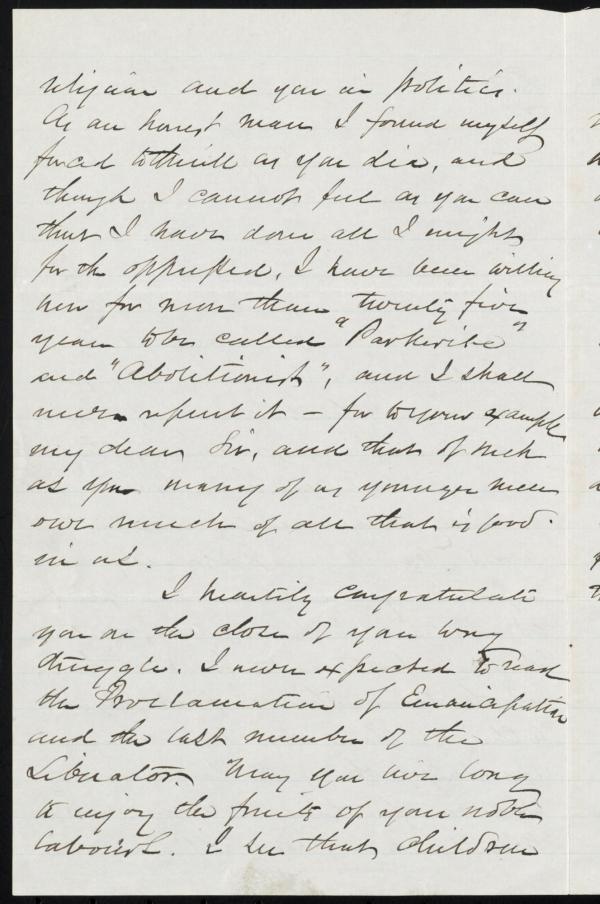 religion and you in politics.
As an honest man I found myself
forced to think as you did, and
though I cannot feel as you can
that I have done all I might
for the oppressed, I have been willing
now for more than twenty five
years to be called "Parkerite"
and "Abolitionist", and I shall
never repent it – for to your example
my dear Sir, and that of such
as you many of us younger men
owe much of all that is good
in us.
I heartily congratulate
you on the close of your long
struggle. I never expected to read
the Proclamation of Emancipation
and the last number of the
Liberator. May you live long
to enjoy the fruits of your noble
labours. I see that children